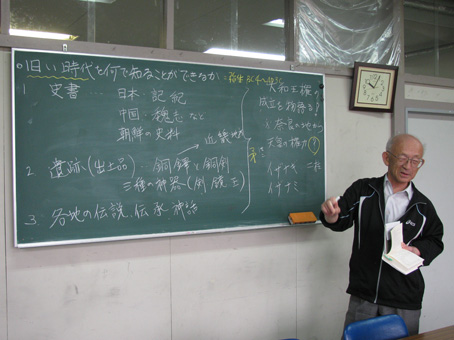 旧い時代を何で知ることができるか
1 史書 日本 記紀
中国 魏志 など
朝鮮の史料
近畿地方
2. 遺跡(出土品) 銅鐸と銅剣
三種の神器(剣 鏡 玉)
3. 各地の伝説、伝承、神話
大和王権の
成立を物語る?
天皇の権力
イザナギ
イザナミ